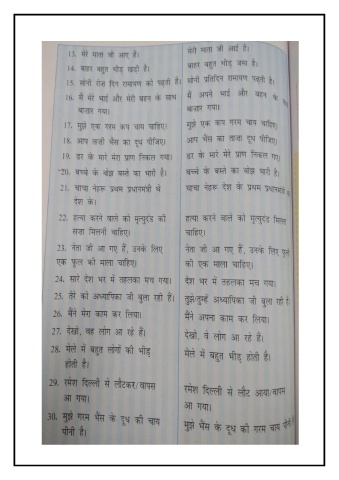 13. मेरे माता जी आए हैं। मेरी माता जी आई हैं।
14. बाहर बहुत भीड़ खड़ी है। बाहर बहुत भीड़ जमा है।
15. सोनी रोज दिन रामायण को पढ़ती है। सोनी प्रतिदिन रामायण पढ़ती है।
16. मैं मेरे भाई और मेरी बहन के साथ मैं अपने भाई और बहन के साथ
बाजार गया। बाजार गया।
17. मुझे एक गरम कप चाय चाहिए। मुझे एक कप गरम चाय चाहिए।
18. आप ताजी भैंस का दूध पीजिए। आप भैंस का ताजा दूध पीजिए।
19. डर के मारे मेरा प्राण निकल गया। डर के मारे मेरे प्राण निकल गए।
20. बच्चे के बोझ बस्ते का भारी है। बच्चे के बस्ते का बोझ भारी है।
21. चाचा नेहरू प्रथम प्रधानमंत्री थे चाचा नेहरू देश के प्रथम प्रधानमंत्री
देश के।
22. हत्या करने वाले को मृत्युदंड की हत्या करने वाले को मृत्युदंड मिलना
सजा मिलनी चाहिए। चाहिए।
23. नेता जी आ गए हैं, उनके लिए नेता जी आ गए हैं, उनके लिए फूलों
एक फूल की माला चाहिए। की एक माला चाहिए।
24. सारे देश भर में तहलका मच गया। देश भर में तहलका मच गया।
25. तेरे को अध्यापिका जी बुला रही हैं। तुझे/तुम्हें अध्यापिका जी बुला रही हैं।
26. मैंने मेरा काम कर लिया। मैंने अपना काम कर लिया।
27. देखो, वह लोग आ रहे हैं। देखो, वे लोग आ रहे हैं।
28. मेले में बहुत लोगों की भीड़ मेले में बहुत भीड़ होती है।
होती है।
29. रमेश दिल्ली से लौटकर/वापस रमेश दिल्ली से लौट आया/वापस
आ गया। आ गया।
30. मुझे गरम भैंस के दूध की चाय मुझे भैंस के दूध की गरम चाय पीनी है।
पीनी है।